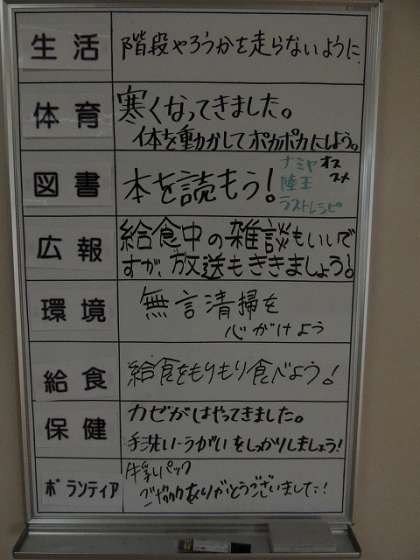 生活
階段やろうかを走らないように
体育
寒くなってきました。
体を動かしてポカポカにしよう。
図書
本を読もう!
ナミヤ
陸王
ラストレシピ
オス
スメ
広報
給食中の雑談もいいで
すが、放送もききましょう!
環境
無言清掃を
心がけよう
給食
給食をもりもり食べよう!
保健
カゼがはやってきました。
手洗い・うがいをしっかりしましょう!
ボランティア
牛乳パック
ご協力ありがとうございました!